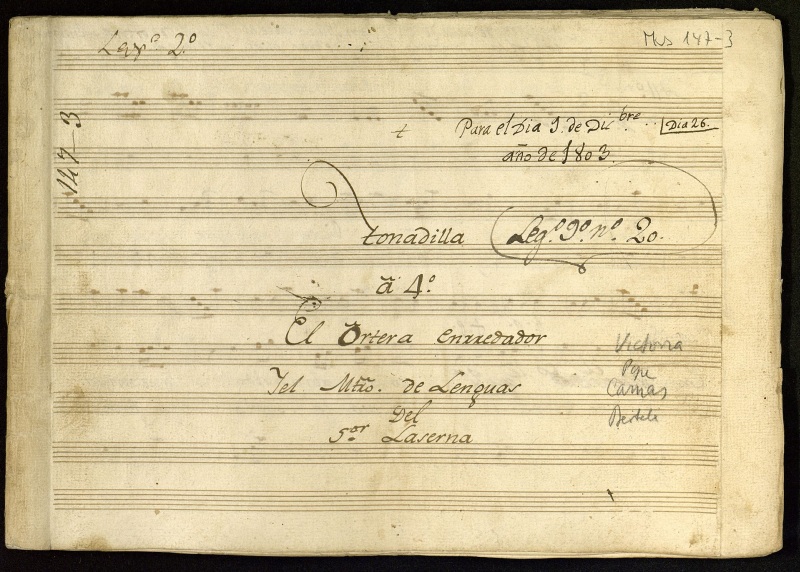 Mus 147-3
147-3
Para el Dia 1 de Dicbre
Dia 26.
año de 1803
tonadilla
Legº 9º nº 20.
â 4º
El Ortera enrredador
Y el Mtro. de Lenguas
Del
Sor Laserna
Victoria
Pepe
Camas